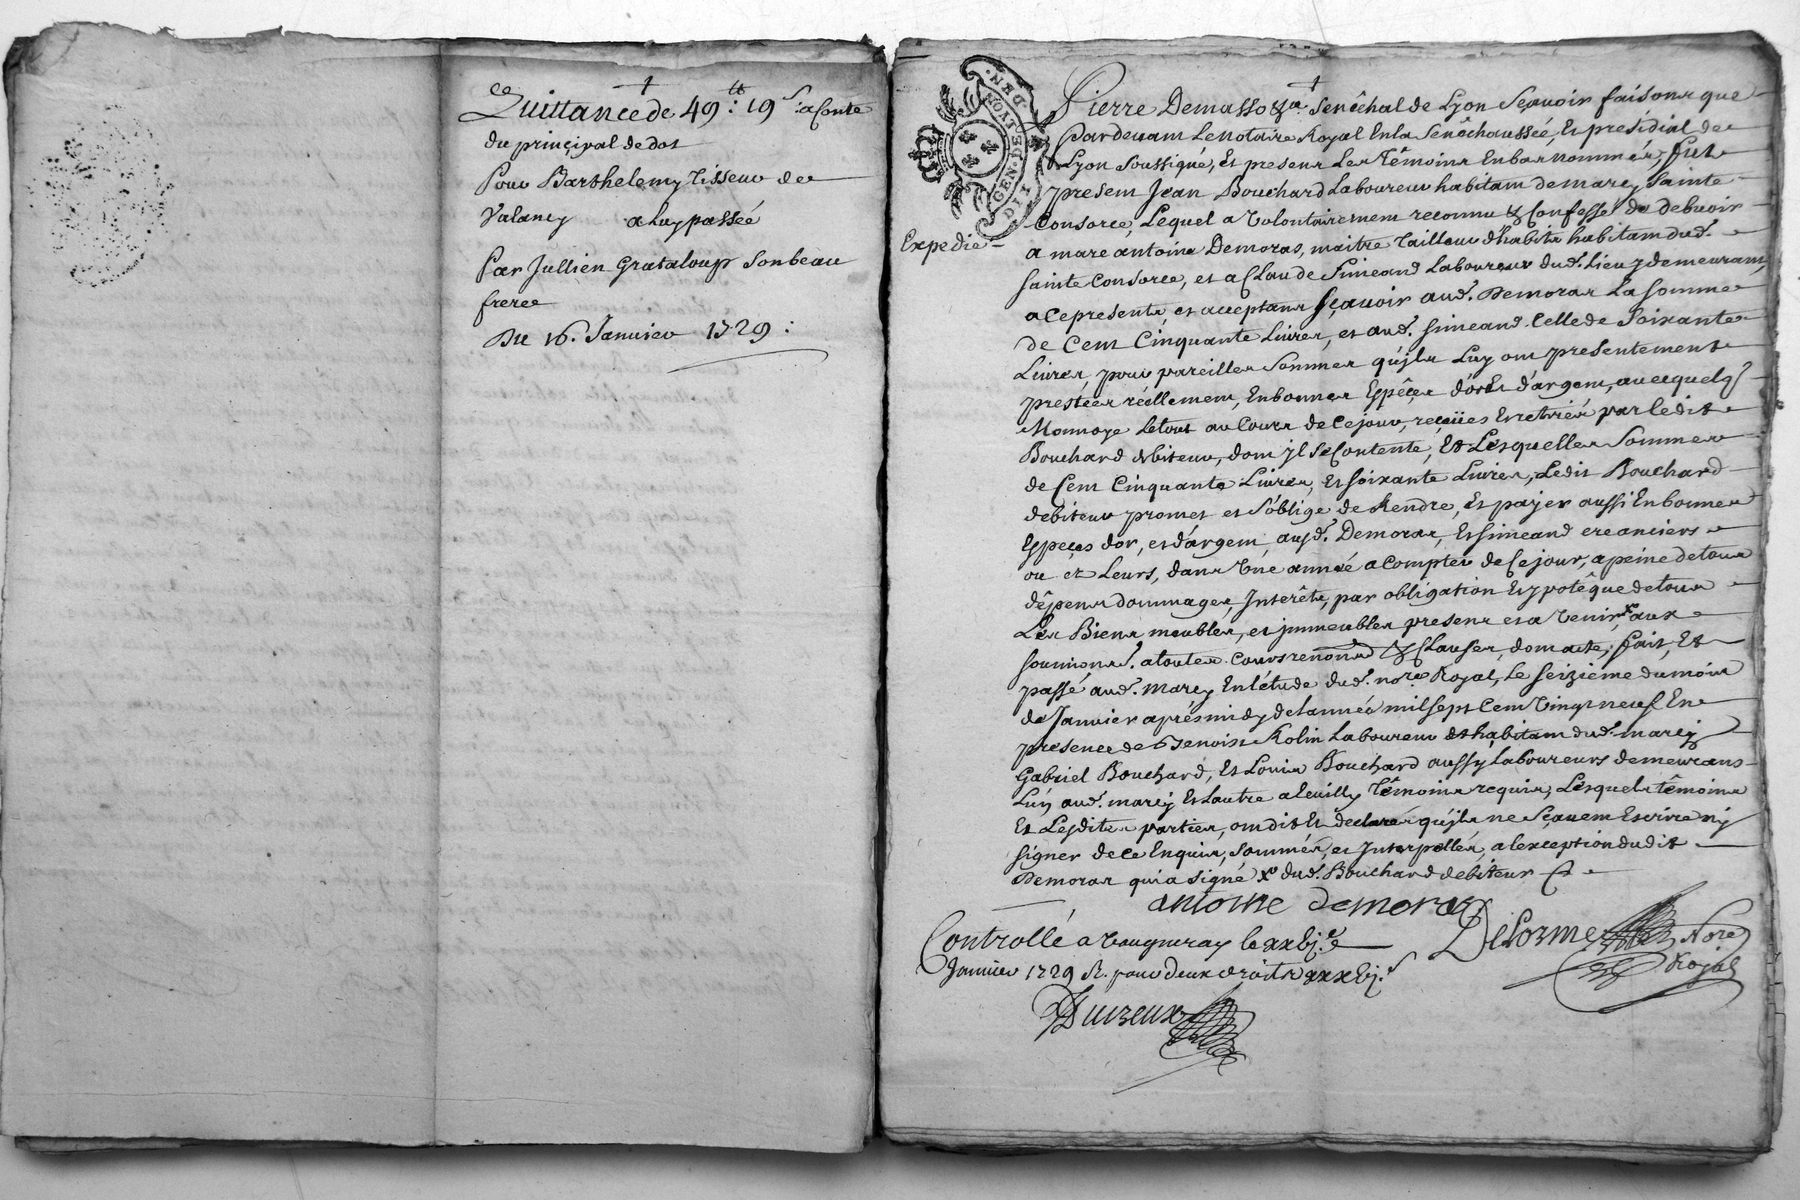 Quittance de 49 tt : 19 s : a Conte
du principal de dot
Pour Barthelemy Tisseur de
Valancy a luy passée
Par Jullien Grataloup son beau
frere
Du 16. Janvier 1729 :
GEN. DE LION
Expedie
Pierre Demasso &a Senêchal de Lyon Sçavoir faisons que
Pardevant Le Notaire Royal En la Senêchaussée, Et presidial de
Lyon Soussigné, Et presens Les Têmoins Enbas nommés, fut
present Jean Bouchard Laboureur habitant de marcy Sainte
Consorce, Lequel a Volontairement reconnu & Confessé debvoir
a marc antoine Demoras, maitre Tailleur d'habits habitant dud.
Sainte Consorce, et a Claude Simeand Laboureur dud. Lieu y demeurant,
a ce presents, et acceptans Sçavoir aud. Demoras La Somme
de Cent Cinquante Livres, et aud. Simeand Celle de Soixante
Livres, pour pareilles Sommes qu'jls Luy ont presentement
prestées réellement, En bonnes Espêces d'or Et d'argent, avec quelq
Monnoye Le tout au Cours de Ce jour, reçües Et retirés par le dit
Bouchard debiteur, dont jl Se Contente, Et Lesquelles Sommes
de Cent Cinquante Livres, Et Soixante Livres, Ledit Bouchard
debiteur promet et S'oblige de Rendre, Et payer aussi En bonnes
Espeçes d'or, et d'argent, ausd. Demoras, Et Simeand creanciers
ou ez Leurs, dans Une année a Compter de Ce jour, a peine de tous
dêpens dommages, Jnterêts, par obligation Et ypotêque de tous
Les Biens meubles, et jmmeubles presens et a Venir, aux
soumions. a toutes Cours renond & Clauses, dont acte, fait, Et
passé aud. marcy En létude dud. nore Royal, Le Seizième du mois
de Janvier aprés midy de lannée mil Sept Cent Vingt neuf En
presence de Benoist Rolin Laboureur et habitant dud. marcy
Gabriel Bouchard, Et Louis Bouchard aussy Laboureurs demeurans
Lún aud. marcy Et Lautre a leuilly Têmoins requis, Lesquels têmoins
Et Lesdites parties, ont dit Et declaré qu'jls ne Sçavent Escrire ny
signer de ce Enquis, Sommés, et Jnterpellés, a lexception dudit
Demoras qui a Signé X dud. Bouchard debiteur
antoine demoras
Delorme Nore
Royal
Controllé a Vaugneray le xxbj.e
Janvier 1729 R. pour deux droits xxxbj. s